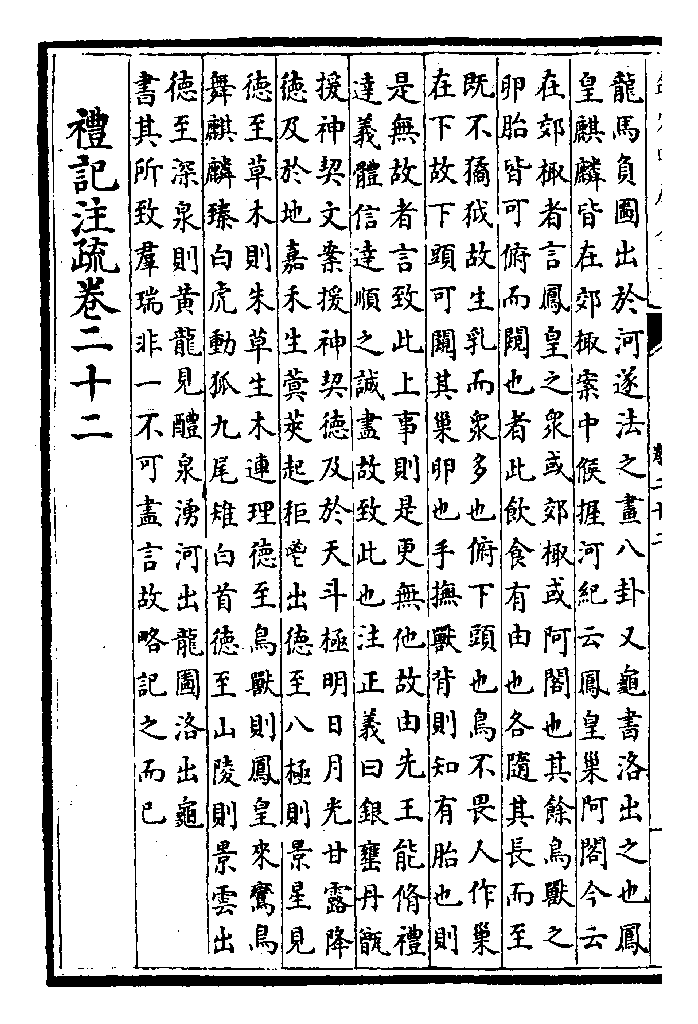 龍馬負圖出於河遂法之畫八卦又龜書洛出之也鳳
皇麒麟皆在郊棷案中候握河紀云鳳皇巢阿閣今云
在郊棷者言鳳皇之衆或郊棷或阿閣也其餘鳥獸之
卵胎皆可俯而闚也者此飲食有由也各隨其長而至
既不獝狘故生乳而衆多也俯下頭也鳥不畏人作巢
在下故下頭可闚其巢卵也手撫獸背則知有胎也則
是無故者言致此上事則是更無他故由先王能脩禮
達義體信達順之誠盡故致此也注正義曰銀罋丹甑
援神契文案援神契德及於天斗極明日月光甘露降
德及於地嘉禾生蓂莢起秬鬯出德至八極則景星見
德至草木則朱草生木連理德至鳥獸則鳳皇來鸞鳥
舞麒麟臻白虎動狐九尾雉白首德至山陵則景雲出
德至深泉則黄龍見醴泉湧河出龍圖洛出龜
書其所致羣瑞非一不可盡言故略記之而已
禮記注疏卷二十二